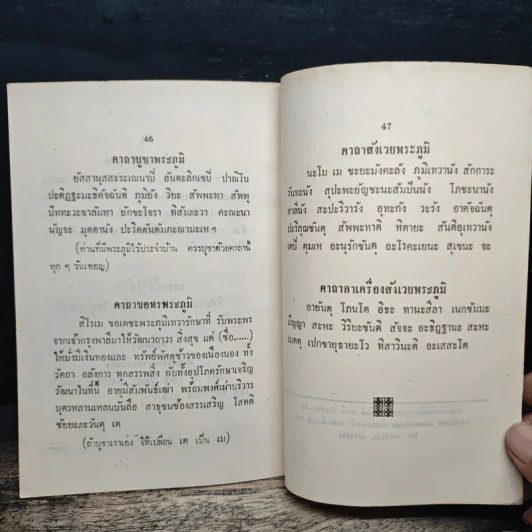 46
คาถาบูชาพระภูมิ
ยัสสานุสสะระเณนาปิ อันตะลิกเขปิ ปาณิโน
ปะติฏฐะมะธิคัจฉันติ ภูมิยัง วิยะ สัพพะทา สัพพู
ปัททะวะชาลัมหา ยักขะโจรา ทิสัมภะวา คะณะนา
นัญจะ มุตตานัง ปะริตตันตัมภะณามะเห ฯ
(ท่านที่มีพระภูมิไว้ประจำบ้าน ควรบูชาด้วยคาถานี้
ทุก ๆ วันเทอญ)
คาถาขอพรพระภูมิ
สิโรเม ขอเดชะพระภูมิเทวารักษาที่ รับพระพร
จากเจ้ากรุงพาลีมาให้วัฒนาถาวร สิ่งสุข แด่ (ชื่อ.....)
ให้มั่งมีเงินทองและ ทรัพย์พัศดุข้าวของเนืองนอง ทั้ง
วัตถา อลังการ พกสรรพสิ่ง กับทั้งอุปโภครักษาเจริญ
วัฒนาในที่นี้ อายุมีสัมพันธ์เฒ่า พร้อมพงศ์เผ่าบริวาร
บุตรหลานเหลนบันลือ สาธุชนซ้องสรรเสริญ โสตถิ
ชัยยะภะวันตุ เต
(ถ้าบูชาเราเอง ให้เปลี่ยน เต เป็น เม)
47
คาถาสังเวยพระภูมิ
นะโม เม ชะยะมังคะลัง ภูมิเทวานัง สักการะ
วันทะนัง สุปะพะยัญชะนะสัมปันนัง โภชะนานัง
สาลีนัง สะปะริวารัง อุทะกัง วะรัง อาคัจฉันตุ
ปะริภุญชันตุ สัพพะทาติ หิตายะ สันติอุเทวานัง
เตปิ ตุมเห อะนุรักขันตุ อะโรคะเยนะ สุเขนะ จะ
คาถาลาเครื่องสังเวยพระภูมิ
อายันตุ โภนโต อิธะ ทานะสีลา เนกขัมมะ
ปัญญา สะหะ วิริยะขันติ สัจจะ อะธิฏฐานะ สะหะ
เมตตุ เปกขายุธายะโว ทิสาวินะติ อะเสสะโต